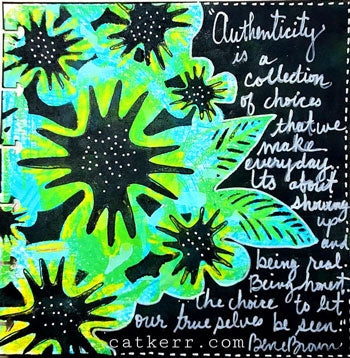 "Authenticity
is a
collection
of choices
that we
make
everyday.
Its about
showing
up
and
being real.
Being honest.
the choice to let
our true selves be seen.
Brene Brown
catkerr.com